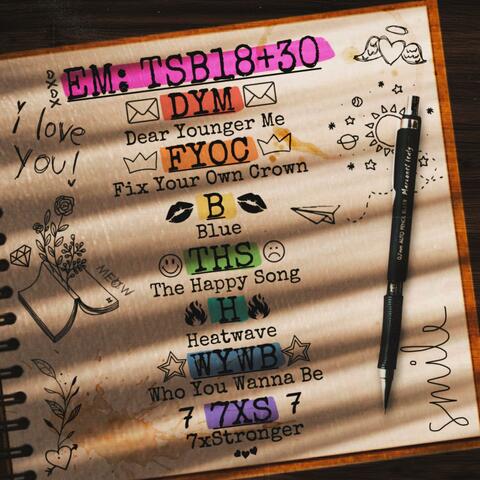 EM: TSB18+30
xoxo
i love
you!
DYM
Dear Younger Me
FYOC
Fix Your Own Crown
B
Blue
THS
The Happy Song
MEOW
H
Heatwave
WYWB
Who You Wanna Be
7 7XS 7
7xStronger
smile
0.7mm AUTO PENCIL